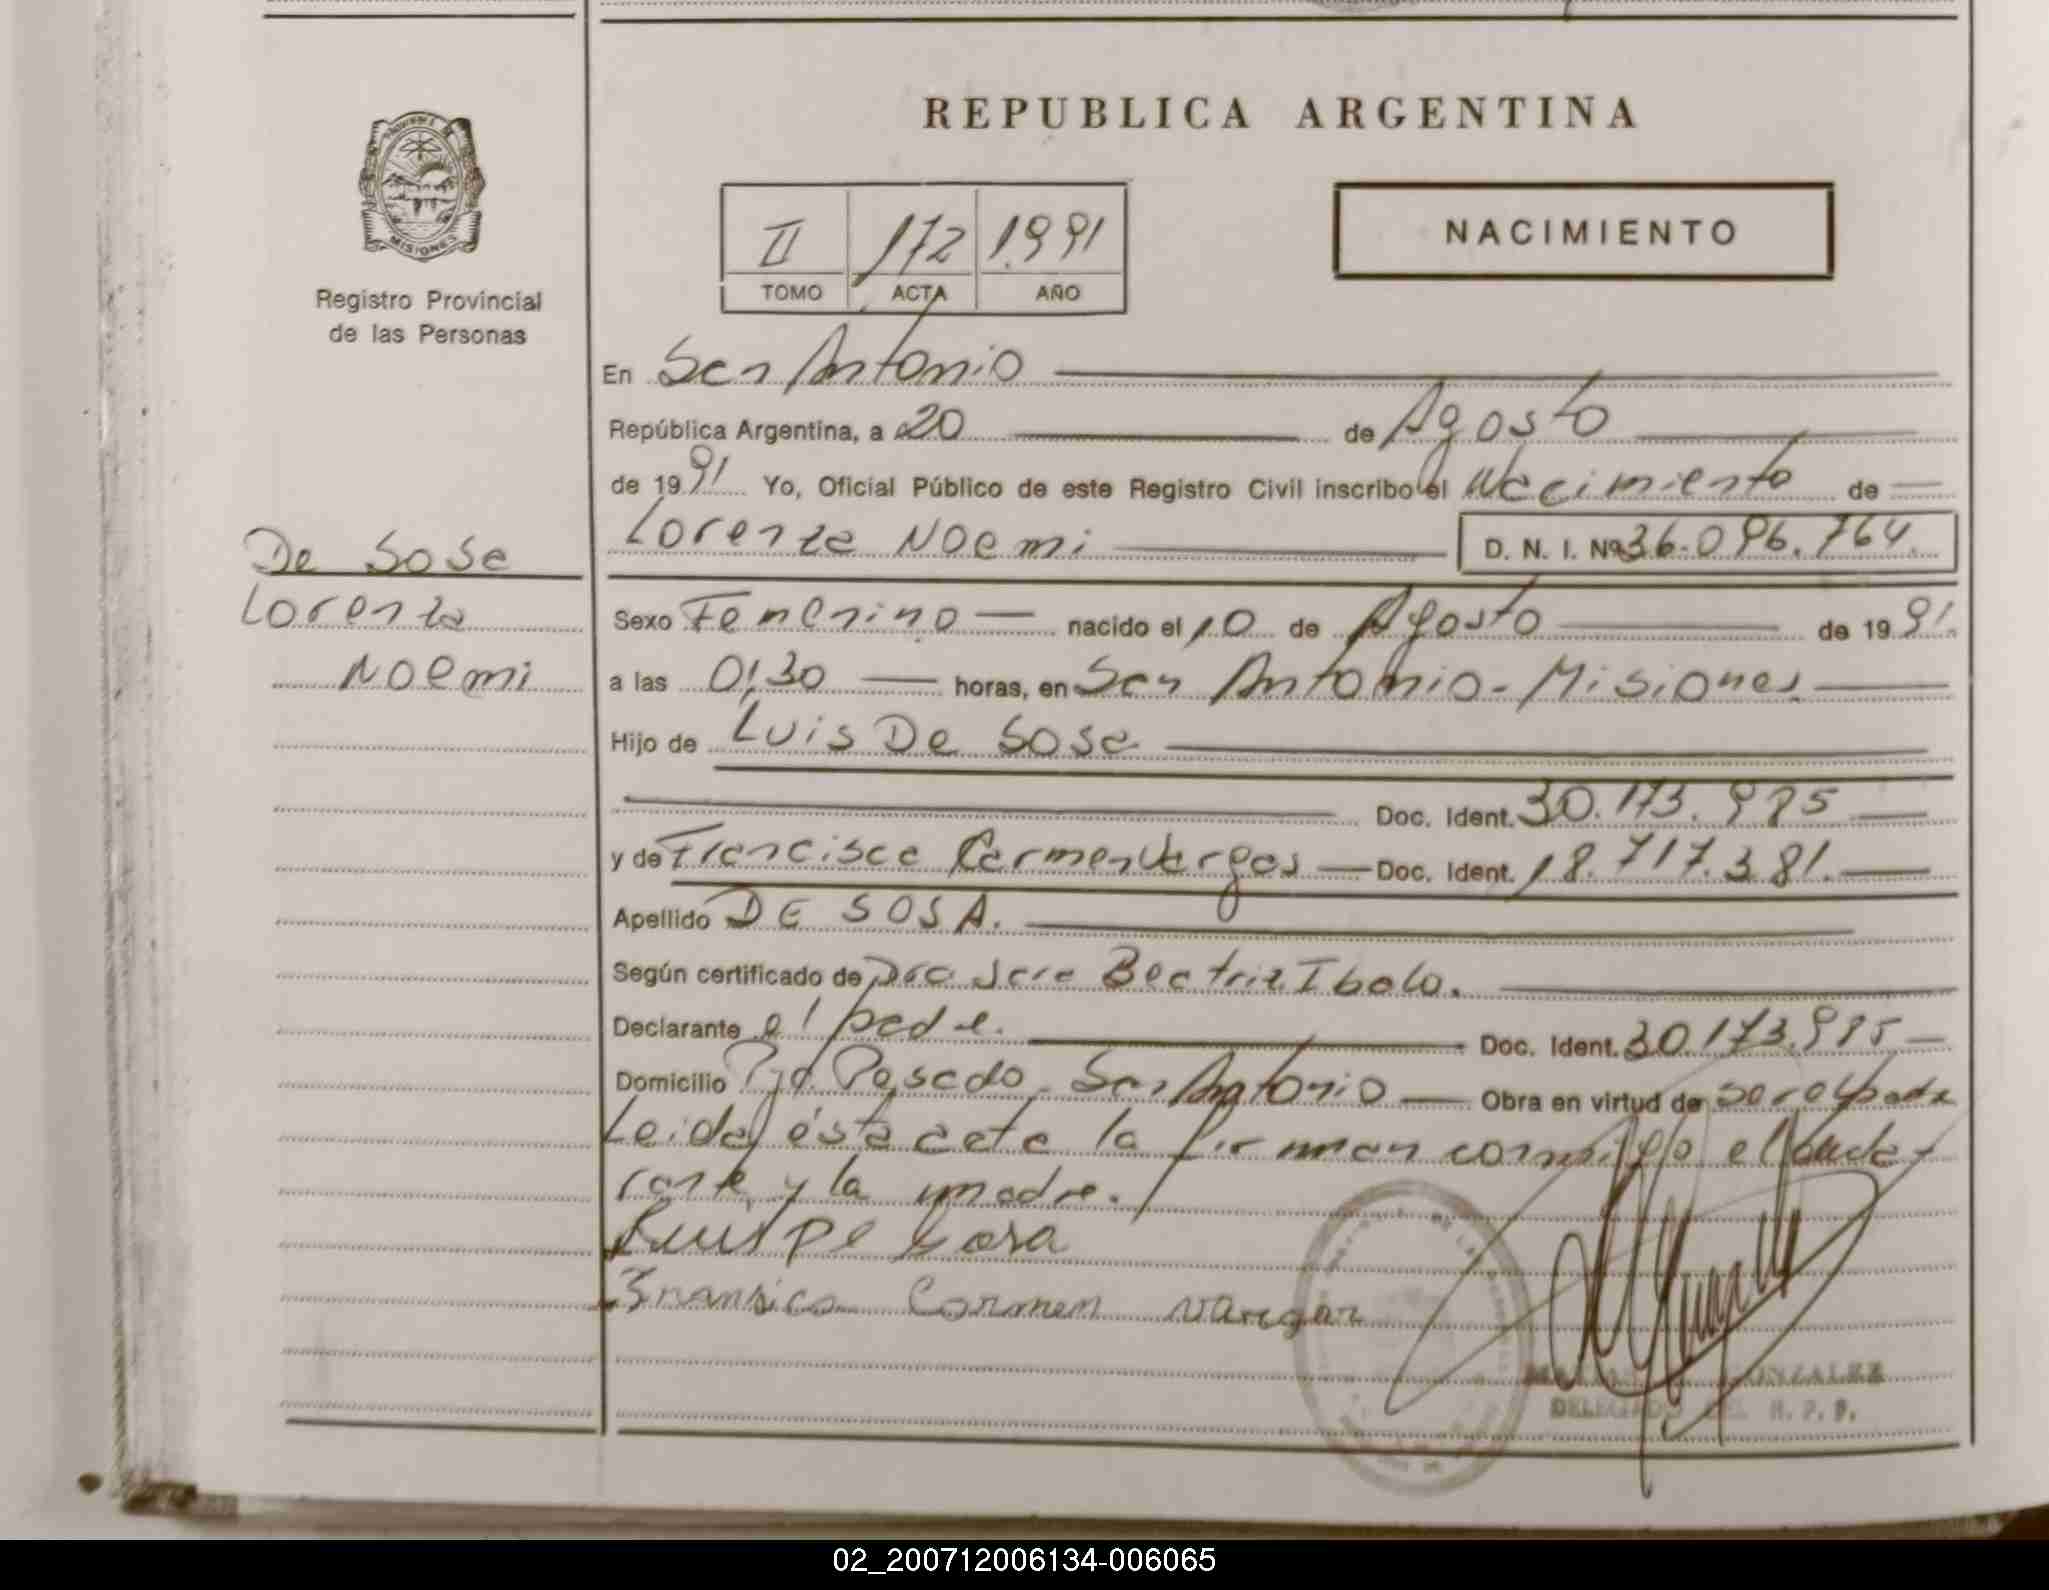 REPUBLICA ARGENTINA
MISIONES
Registro Provincial
de las Personas
II 172 1.991
TOMO ACTA AÑO
NACIMIENTO
En San Antonio
República Argentina, a 20 de Agosto
de 1991 Yo, Oficial Público de este Registro Civil inscribo el Nacimiento de
Lorenza Noemi D. N. I. Nº 36.096.764.
De Sosa
Lorenza
Noemi
Sexo Femenino nacido el 10 de Agosto de 1991
a las 0:30 horas, en San Antonio - Misiones.
Hijo de Luis De Sosa
Doc. Ident. 30.173.985
y de Francisca Carmen Vargas Doc. Ident. 18.717.381.
Apellido DE SOSA.
Según certificado de Dra Sara Beatriz
Declarante el padre. Doc. Ident. 30.173.985
Domicilio Pje. Posado San Antonio Obra en virtud de ser el padre
Leida ésta acta la firman conmigo el decla-
rante y la madre.
Luis De Sosa
Fransica Carmen Vargas
GONZALEZ
DELEGADO DEL R. P. P.
02_200712006134-006065